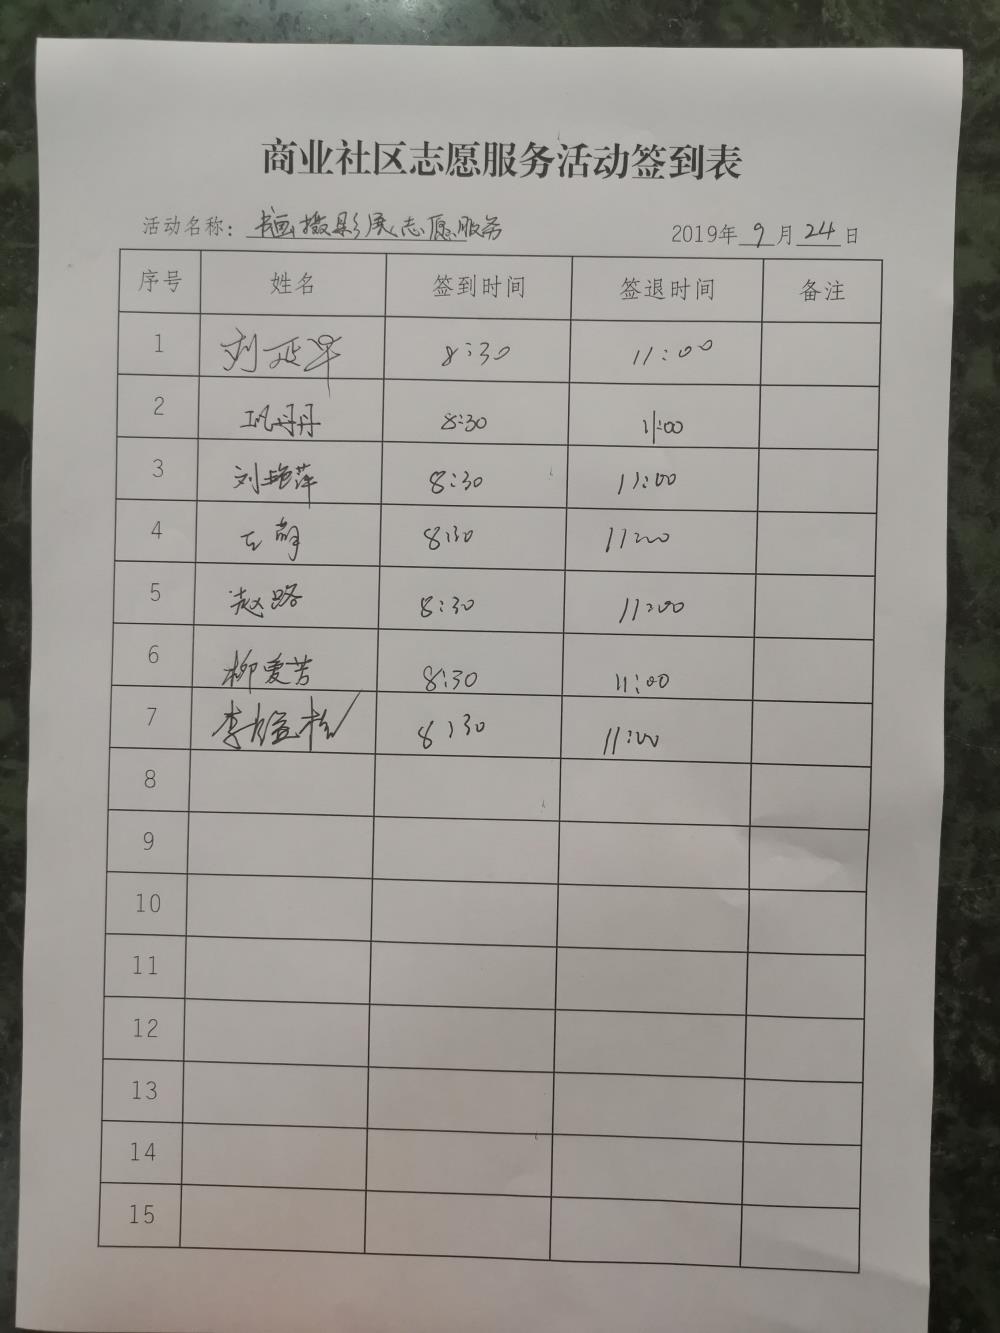 商业社区志愿服务活动签到表
活动名称：书画摄影展志愿服务 2019年9月24日
序号 姓名 签到时间 签退时间 备注
1 刘延军 8:30 11:00
2 巩丹丹 8:30 11:00
3 刘艳萍 8:30 11:00
4 8:30 11:00
5 赵路 8:30 11:00
6 柳爱芳 8:30 11:00
7 8:30 11:00
8
9
10
11
12
13
14
15